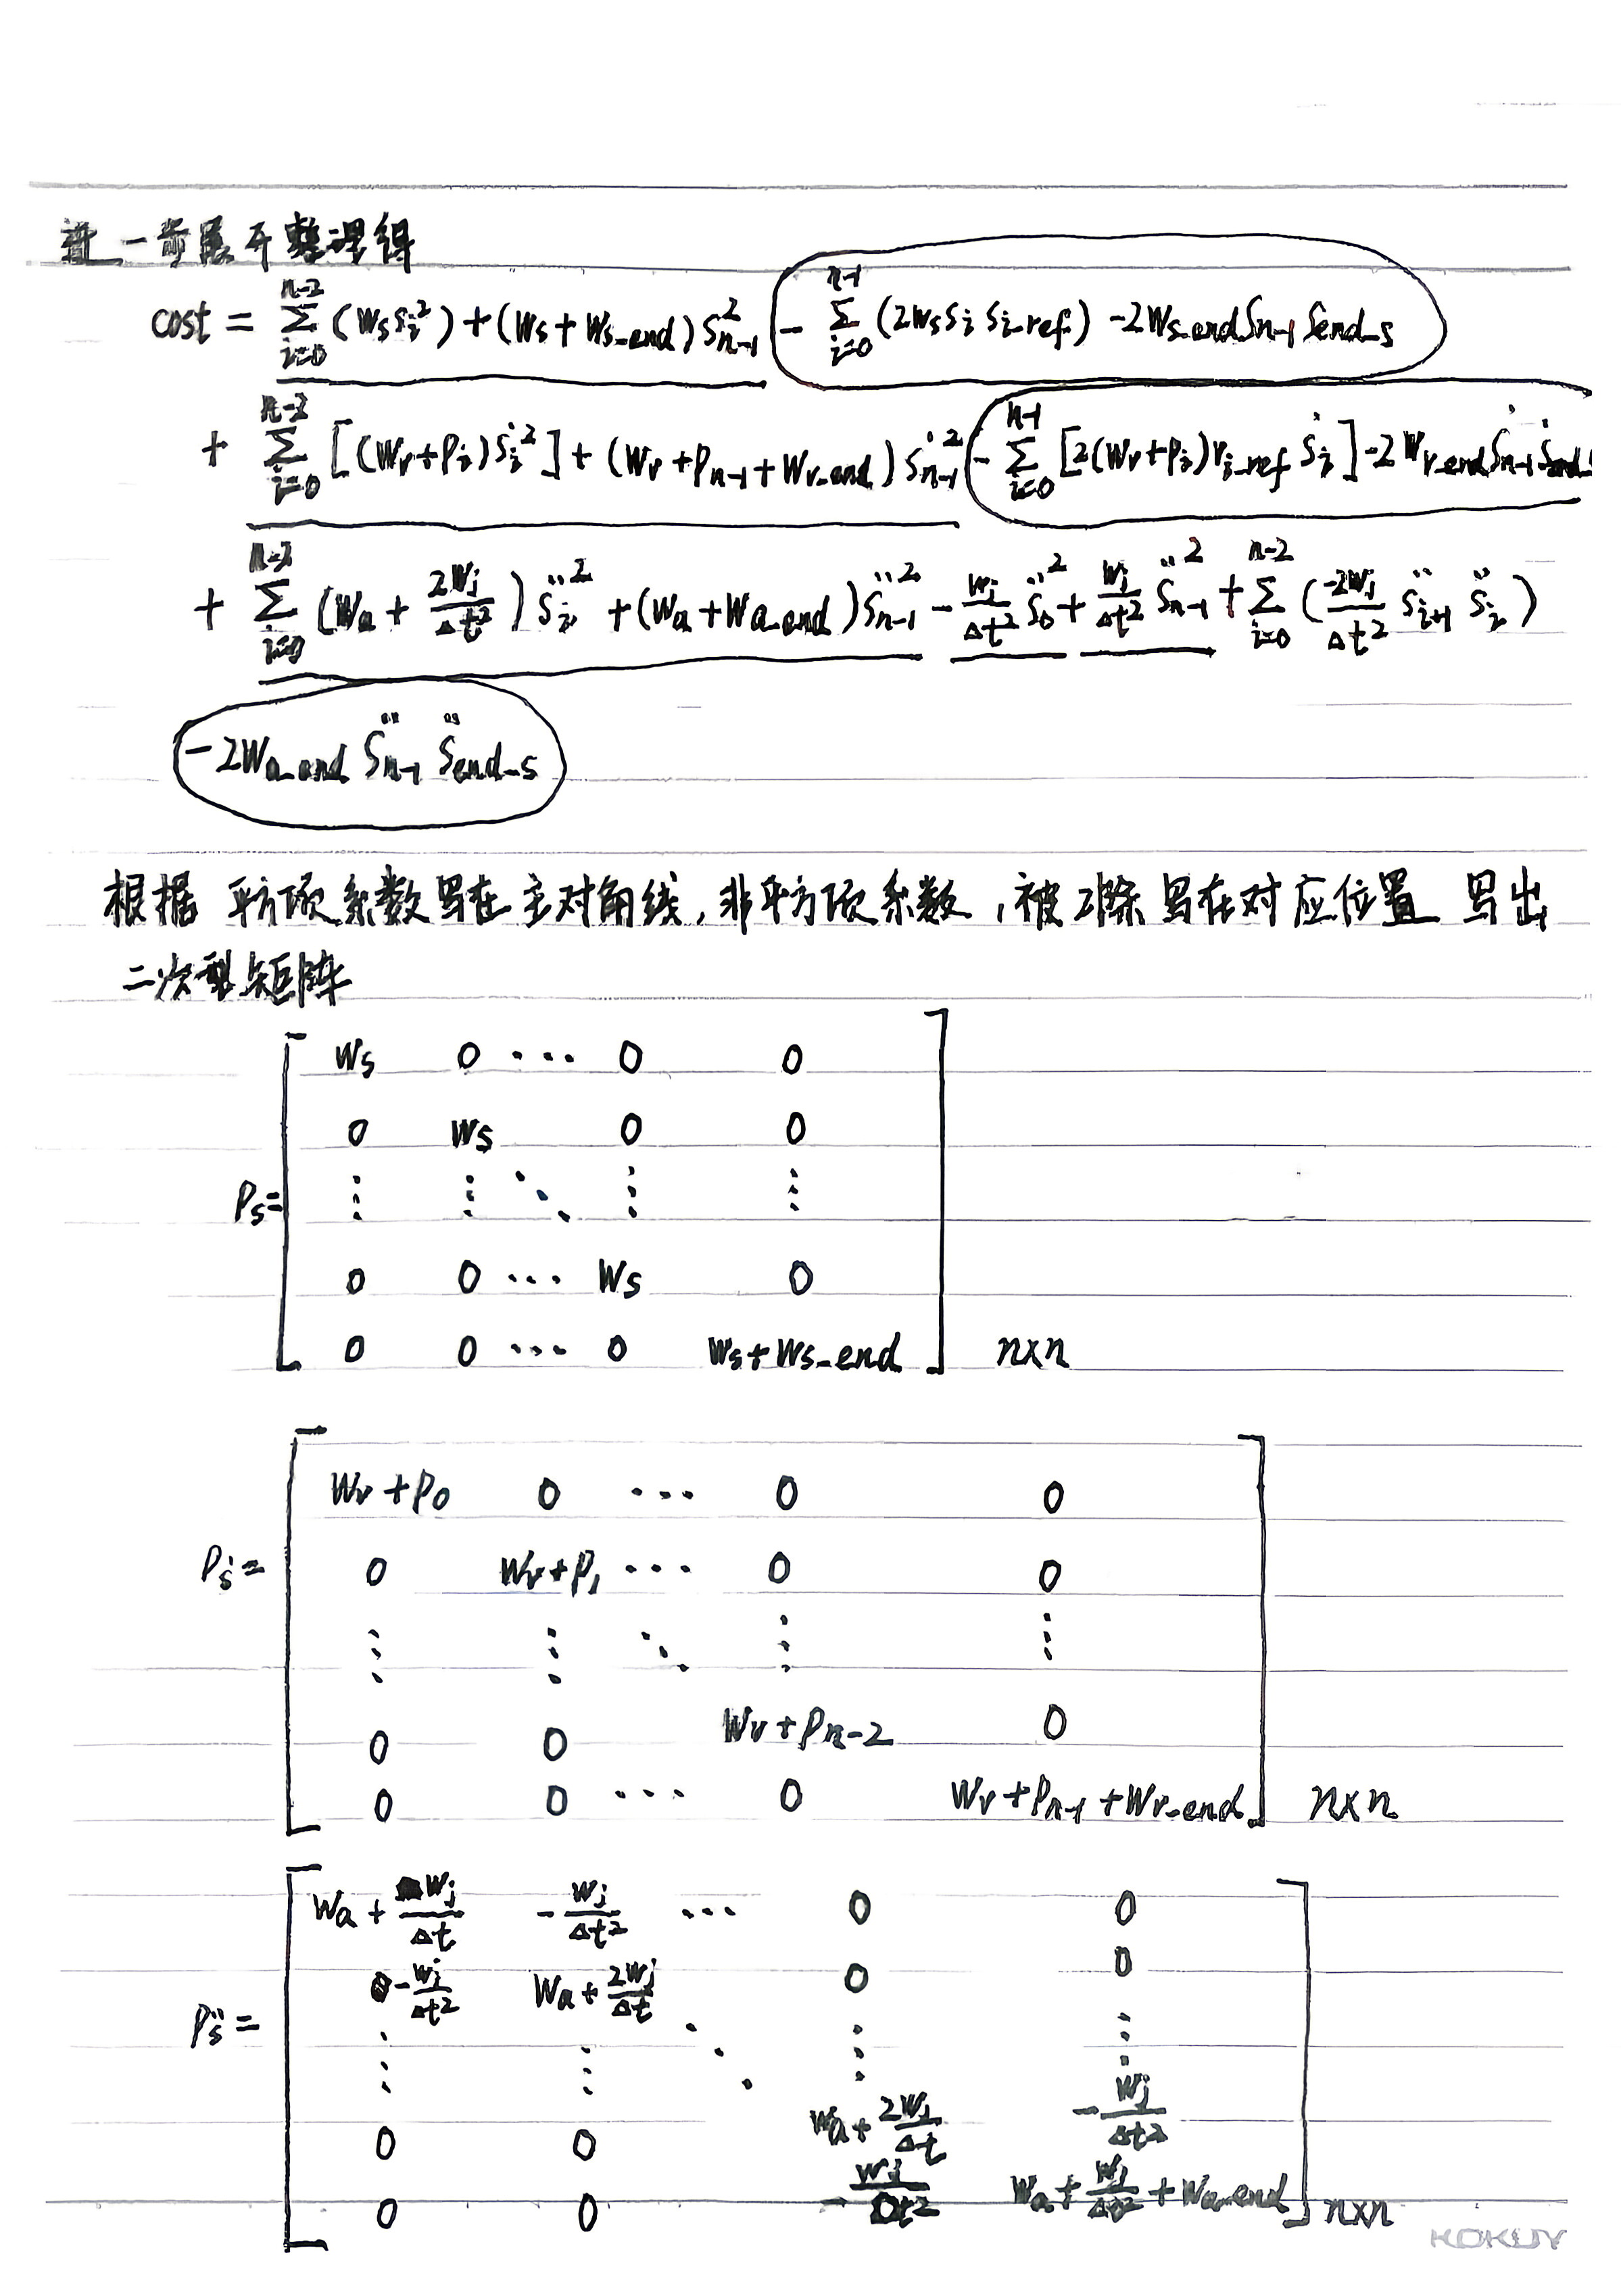 进一步展开整理得
cost = \sum_{i=0}^{n-2} (w_s s_i^2) + (w_s + w_{s\_end}) s_{n-1}^2 - \sum_{i=0}^{n-1} (2 w_s s_i s_{i\_ref}) - 2 w_{s\_end} s_{n-1} s_{end\_s}
+ \sum_{i=0}^{n-2} [(w_v + p_i) \dot{s}_i^2] + (w_v + p_{n-1} + w_{v\_end}) \dot{s}_{n-1}^2 - \sum_{i=0}^{n-1} [2 (w_v + p_i) v_{i\_ref} \dot{s}_i] - 2 w_{v\_end} \dot{s}_{n-1} \dot{s}_{end\_
+ \sum_{i=0}^{n-2} (w_a + \frac{2w_j}{\Delta t^2}) \ddot{s}_i^2 + (w_a + w_{a\_end}) \ddot{s}_{n-1}^2 - \frac{w_j}{\Delta t^2} \ddot{s}_0^2 + \frac{w_j}{\Delta t^2} \ddot{s}_{n-1}^2 + \sum_{i=0}^{n-2} (\frac{-2w_j}{\Delta t^2} \ddot{s}_{i+1} \ddot{s}_i)
- 2 w_{a\_end} \ddot{s}_{n-1} \ddot{s}_{end\_s}
根据 平方项系数写在主对角线,非平方项系数,被2除写在对应位置 写出
二次型矩阵
w_s 0 ··· 0 0
0 w_s 0 0
P_s = ⋮ ⋮ ⋱ ⋮ ⋮
0 0 ··· w_s 0
0 0 ··· 0 w_s + w_{s\_end} n×n
w_v + p_0 0 ··· 0 0
P_{\dot{s}} = 0 w_v + p_1 ··· 0 0
⋮ ⋮ ⋱ ⋮ ⋮
0 0 w_v + p_{n-2} 0
0 0 ··· 0 w_v + p_{n-1} + w_{v\_end} n×n
w_a + \frac{w_j}{\Delta t} -\frac{w_j}{\Delta t^2} ··· 0 0
-\frac{w_j}{\Delta t^2} w_a + \frac{2w_j}{\Delta t} 0 0
P_{\ddot{s}} = ⋮ ⋮ ⋱ ⋮ ⋮
0 0 w_a + \frac{2w_j}{\Delta t} -\frac{w_j}{\Delta t^2}
0 0 -\frac{w_j}{\Delta t^2} w_a + \frac{w_j}{\Delta t^2} + w_{a\_end} n×n
KOKUY